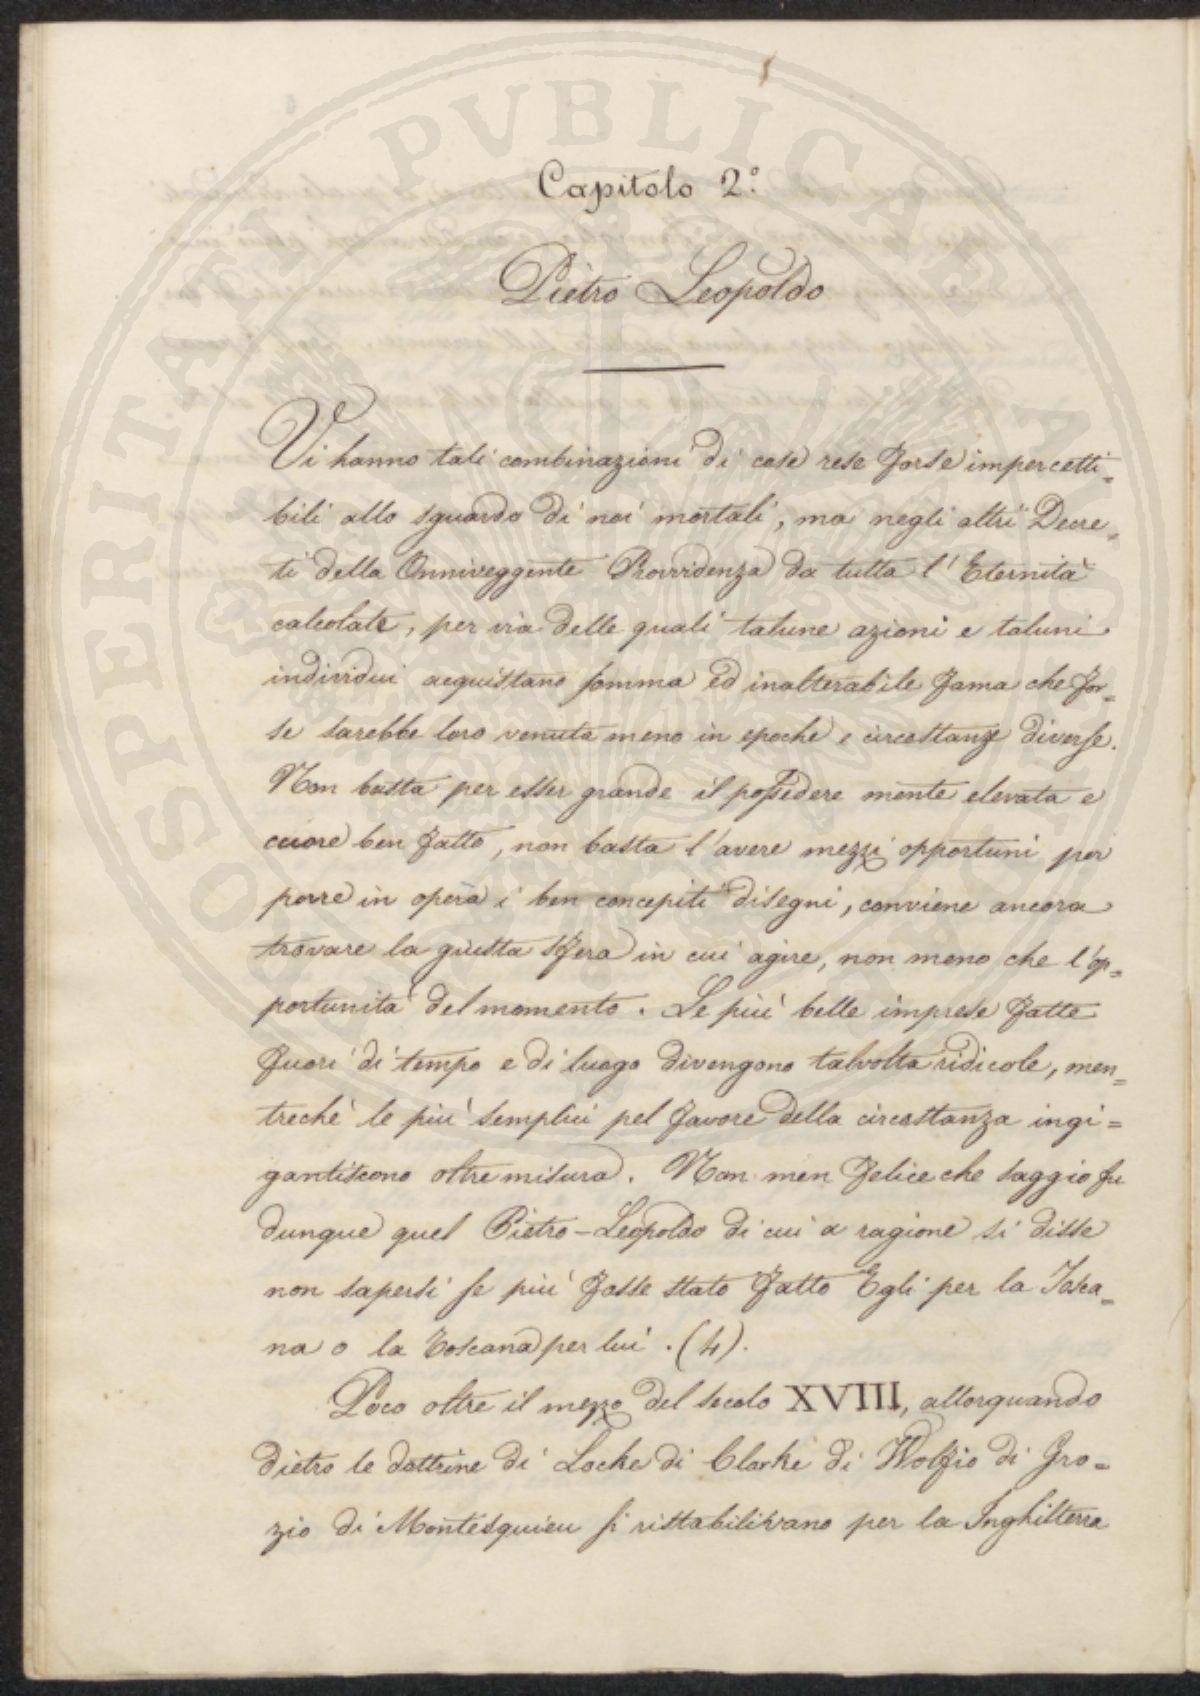 Capitolo 2º
Pietro Leopoldo
Vi hanno tali combinazioni di cose rese forse impercetti=
bili allo sguardo di noi mortali, ma negli altri Decre=
ti della Onniveggente Provvidenza da tutta l'Eternità
calcolate, per via delle quali talune azioni e taluni
individui acquistano somma ed inalterabile fama che for=
se sarebbe loro venuta meno in epoche e circostanze diverse.
Non basta per esser grande il possedere mente elevata e
cuore ben fatto, non basta l'avere mezzi opportuni per
porre in opera i ben concepiti disegni, conviene ancora
trovare la giusta sfera in cui agire, non meno che l'op=
portunità del momento. Le più belle imprese fatte
fuori di tempo e di luogo divengono talvolta ridicole, men=
trechè le più semplici pel favore della circostanza ingi=
gantiscono oltremisura. Non men felice che saggio fu
dunque quel Pietro-Leopoldo di cui a ragione si disse
non sapersi se più fosse stato fatto Egli per la Tosca=
na o la Toscana per lui. (4).
Poco oltre il mezzo del secolo XVIII, allorquando
dietro le dottrine di Locke di Clarke di Wolfio di Gro=
zio di Montesquieu si ristabilivano per la Inghilterra
PROSPERITATI PVBLICAE AVGENDAE